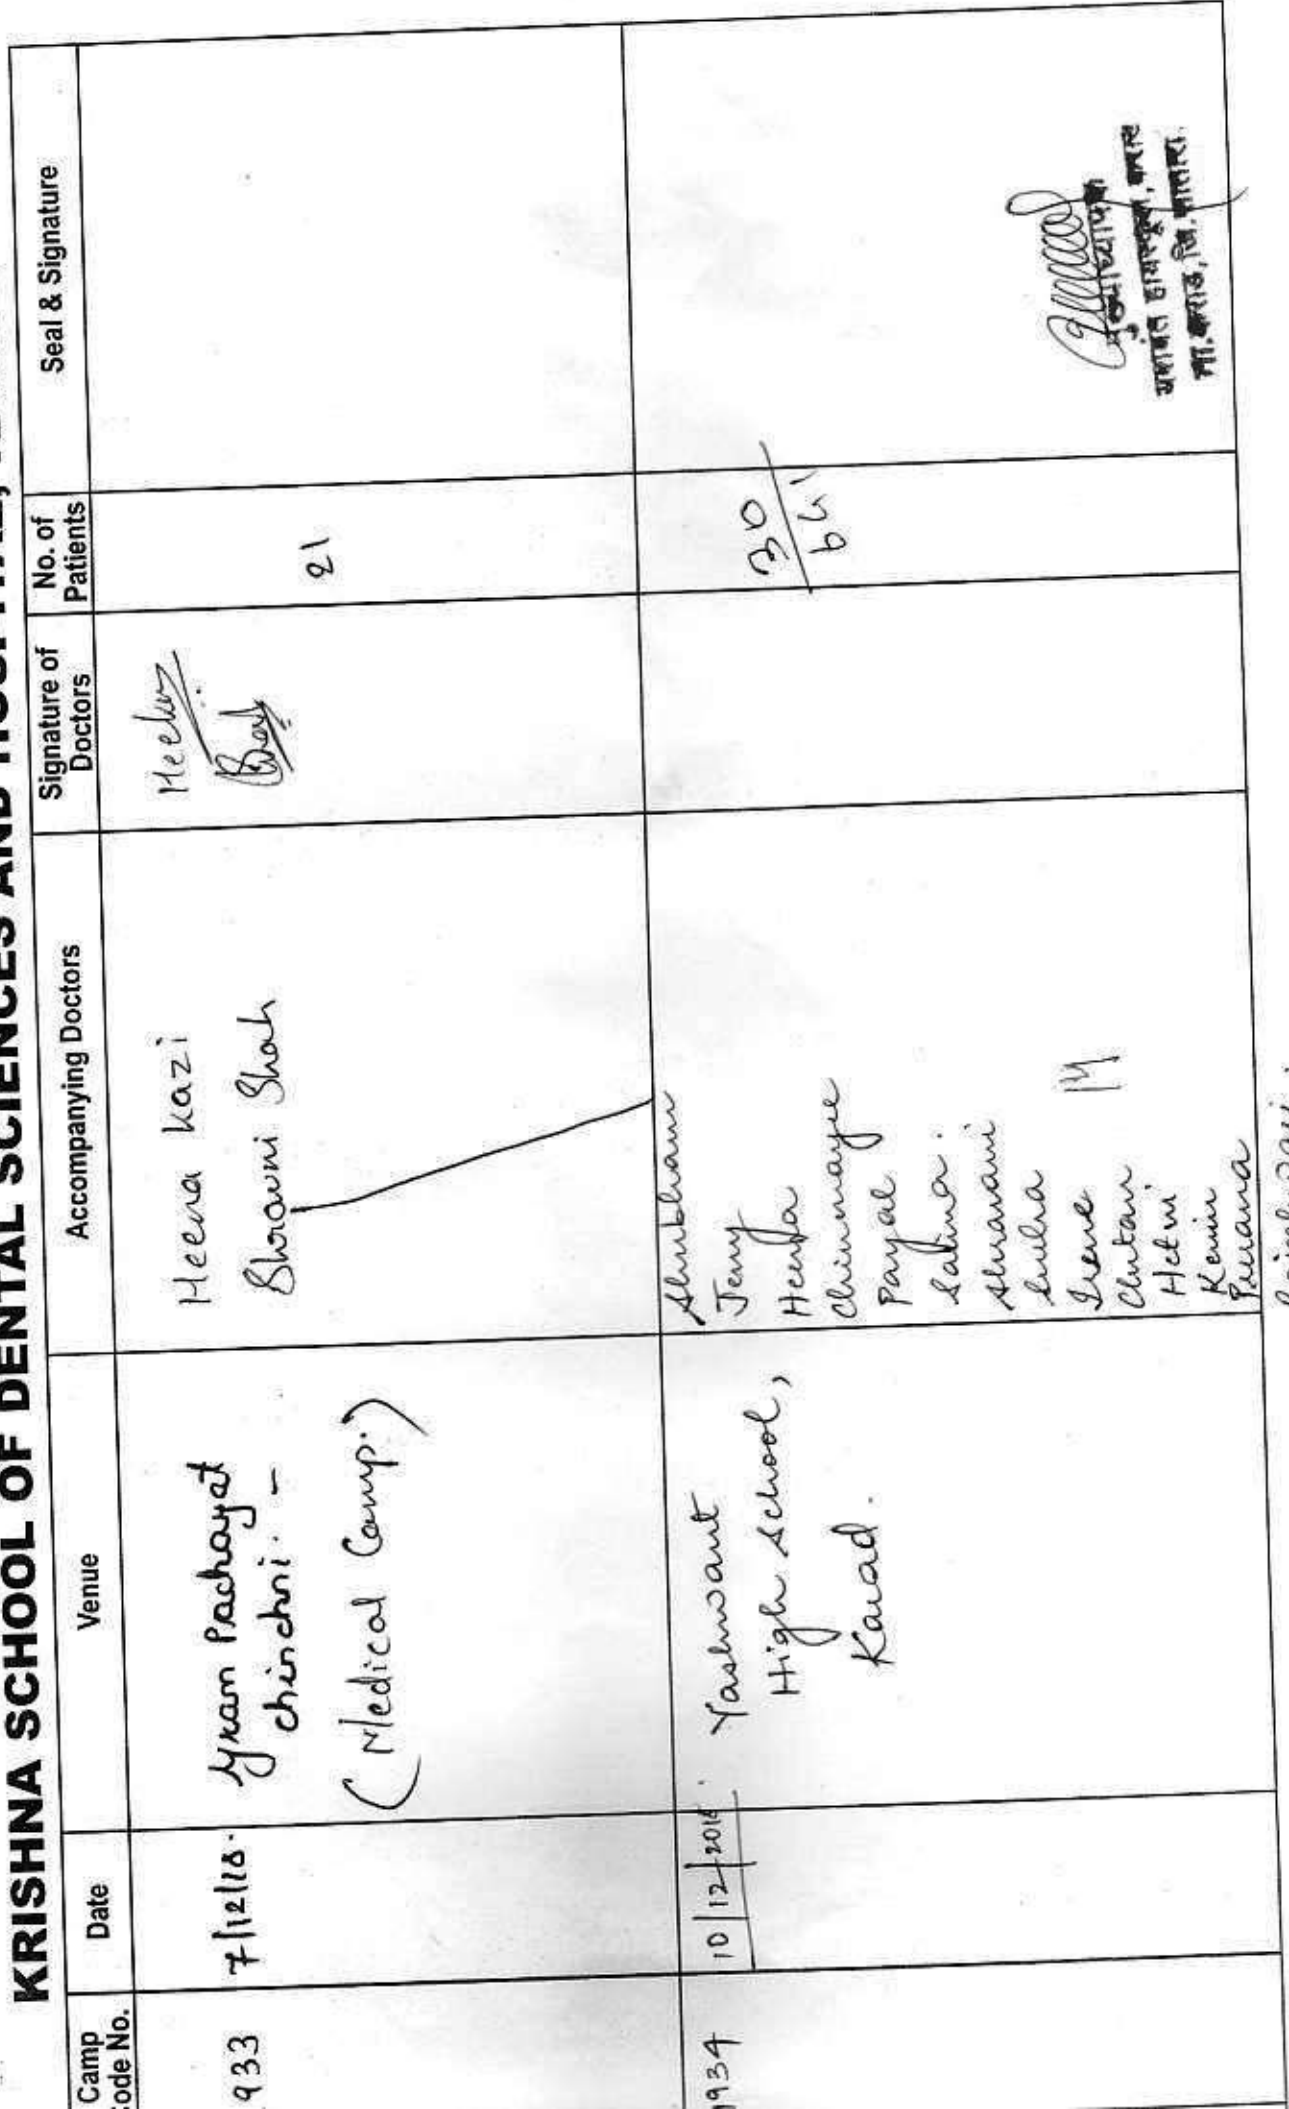 KRISHNA SCHOOL OF DENTAL SCIENCES AND
Camp
ode No.
Date
Venue
Accompanying Doctors
Signature of
Doctors
No. of
Patients
Seal & Signature
933
7/12/18.
Gram Pachayat
chinchni. -
(Medical Camp.)
Heena Kazi
Shravni Shah
21
1934
10/12/2018.
Yashwant
High School,
Karad.
Shubham
Jeny
Chinmayee
Payal
Salina.
Shravani
Irene
Hetvi
Kevin
30
मुख्याध्यापक
यशवंत हायस्कूल, कराड
ता. कराड, जि. सातारा.